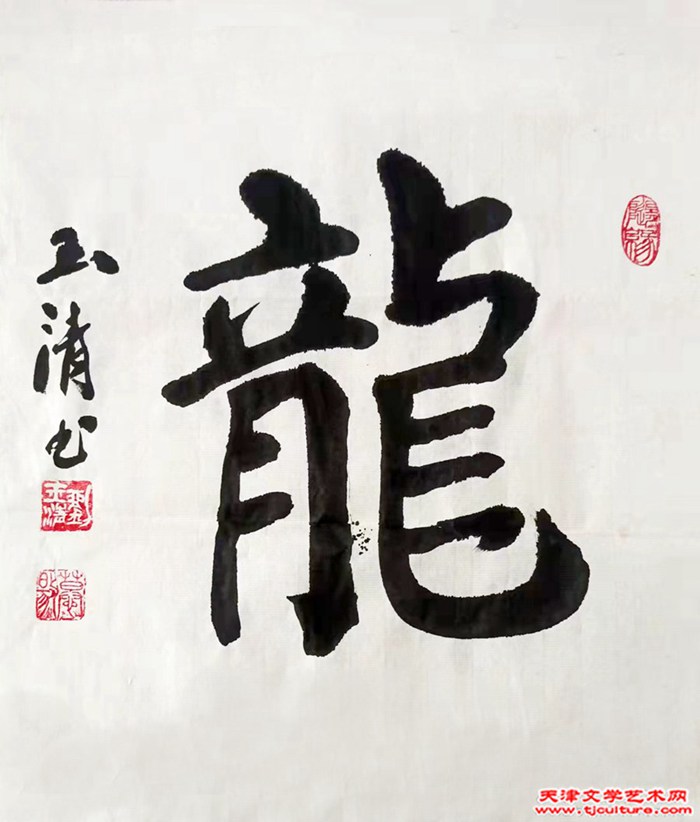 龍
玉清书
劉玉清
天津文学艺术网
www.tjculture.com